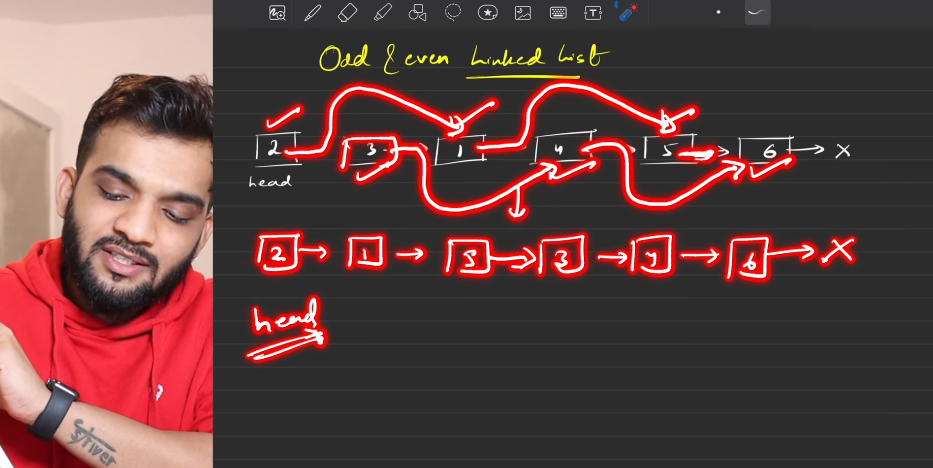 Odd & even Linked List
2 3 1 4 5 6 X
head
2 1 5 3 4 6 X
head
striver